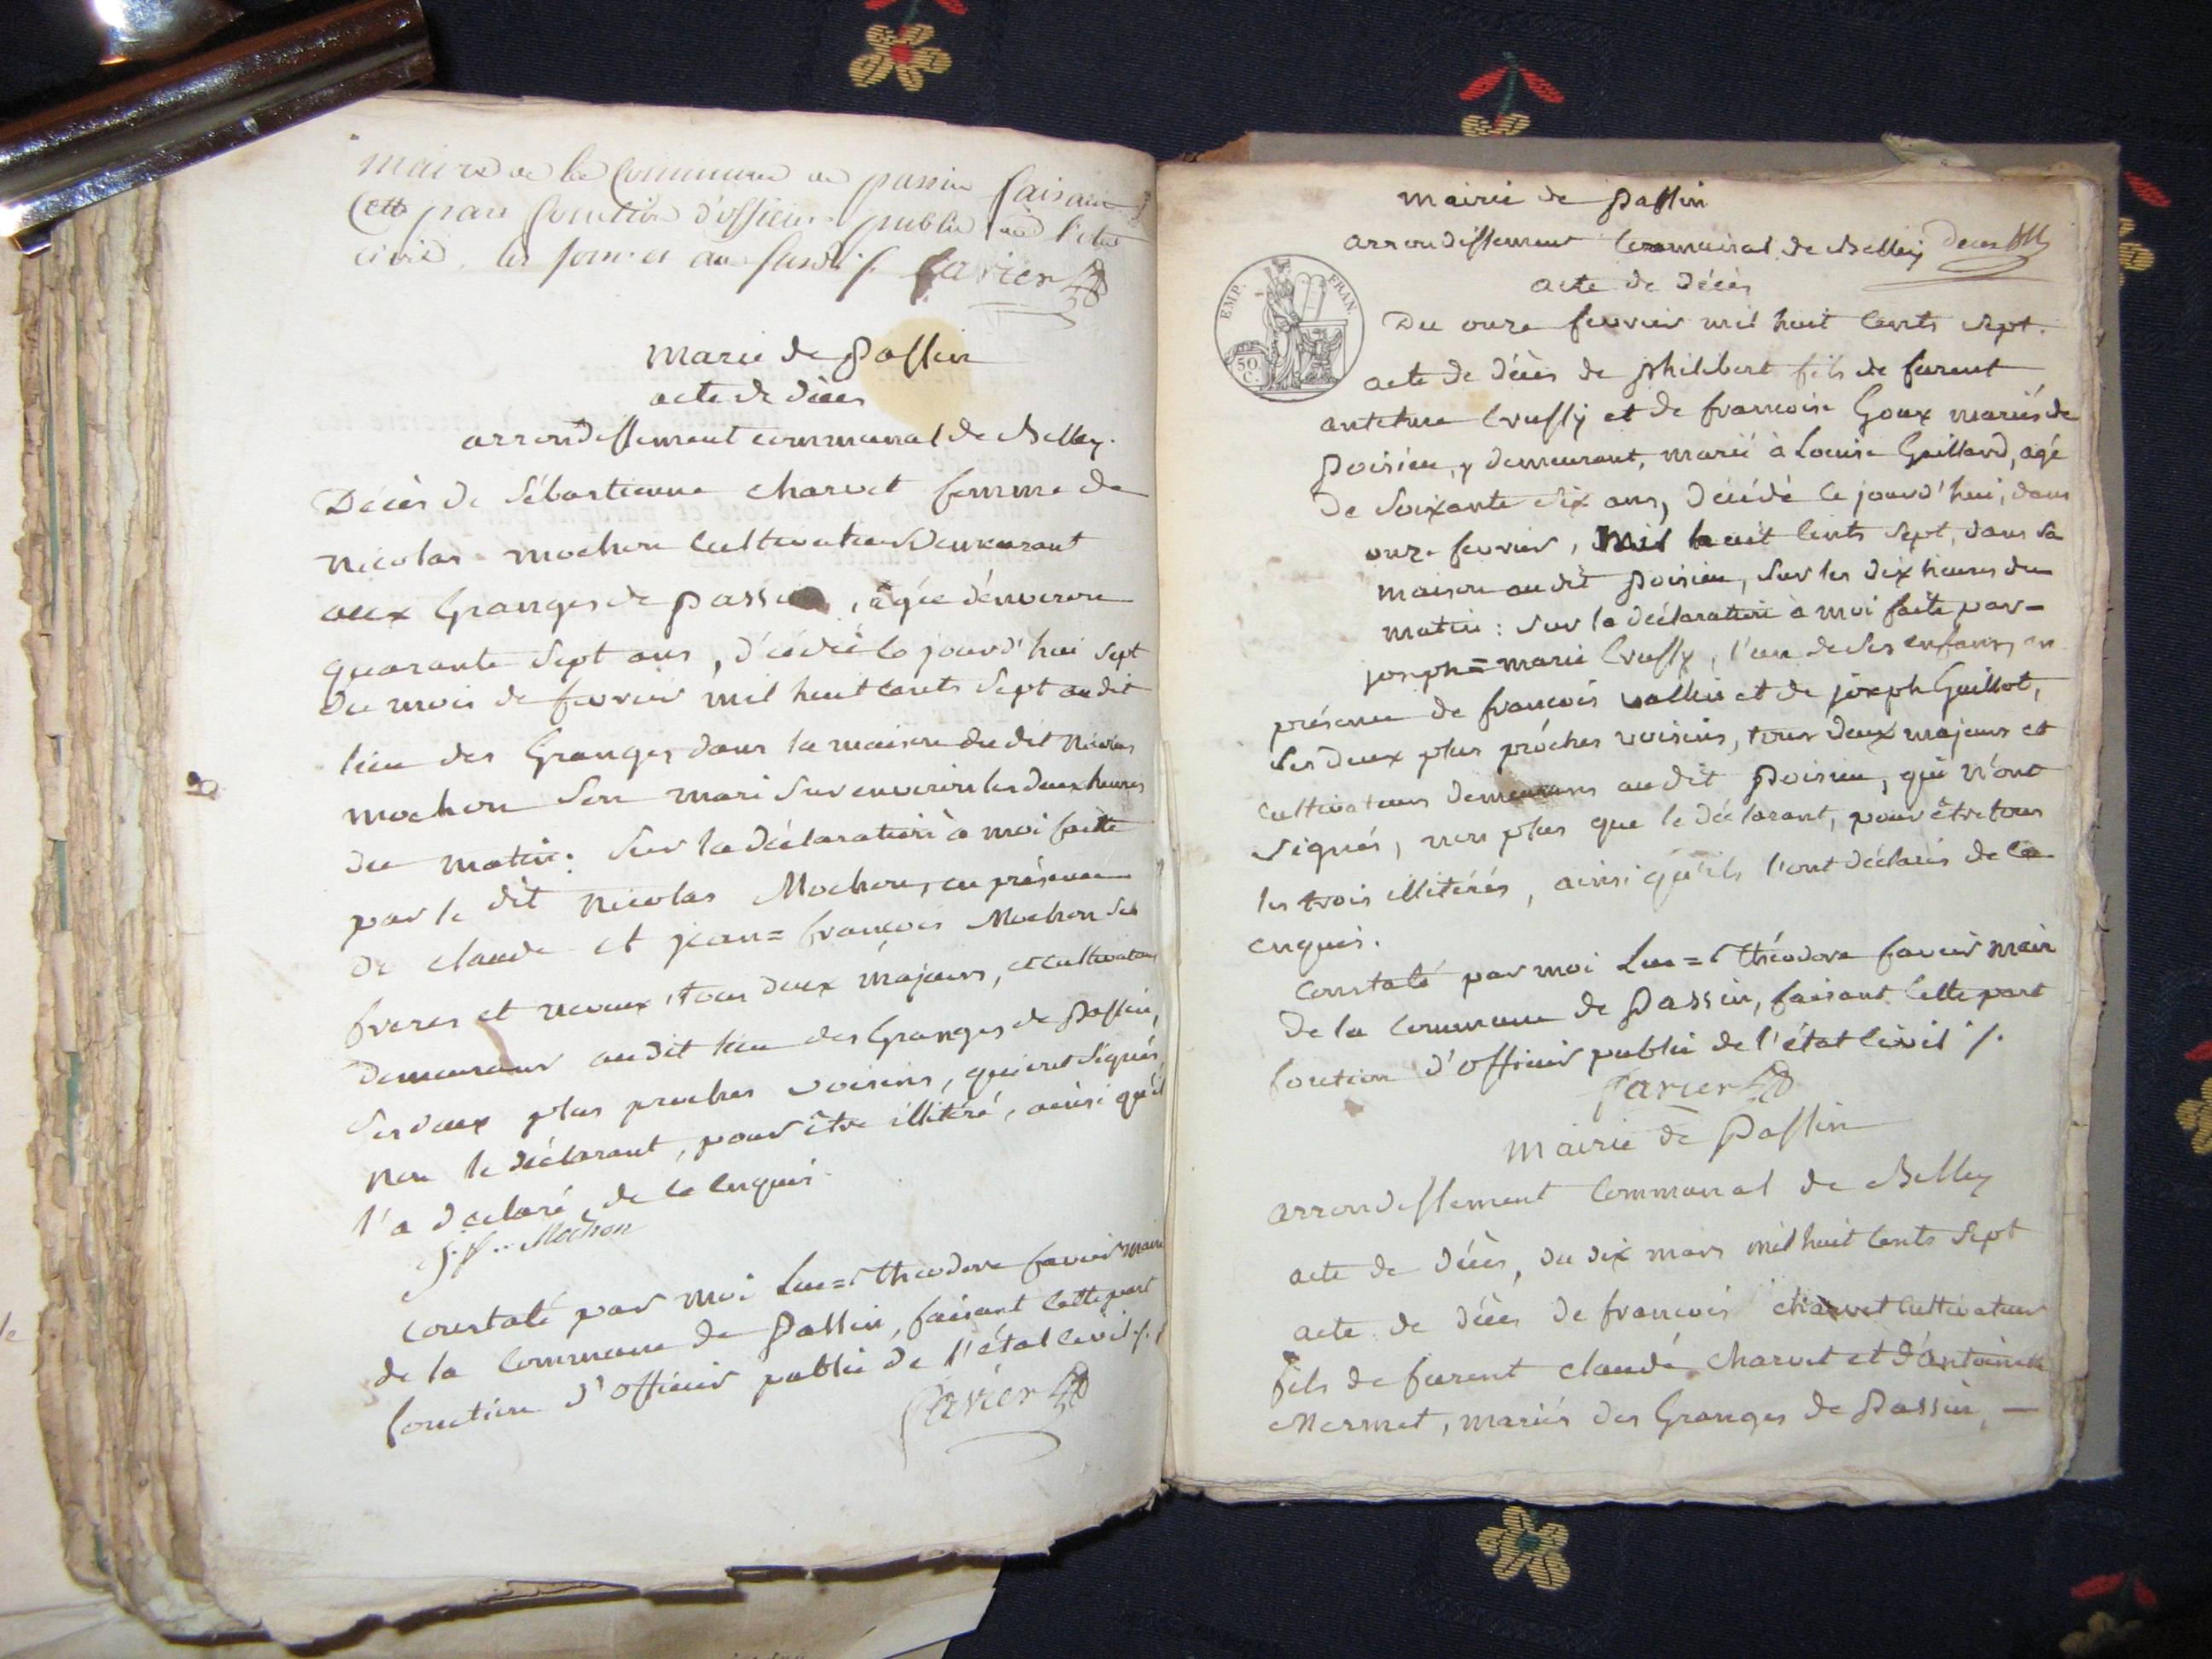 maire de la Commune de passin faisant
Cette part fonction d'officier public de l'état
civil les jour et an susdit ./. favier
Marie de Passin
acte de décès
arrondissement communal de Belley.
Décès de Sébastienne charvet femme de
Nicolas mochon Cultivateur Demeurant
aux Granges de passin, agée d'environ
quarante Sept ans, décédé le jourd'hui sept
du mois de fevrier mil huit cents Sept audit
lieu des Granges dans la maison dudit Nicolas
mochon Son mari Sur environ les deux heures
du matin: Sur la déclaration à moi faitte
par le dit Nicolas Mochon, en présence
de claude et jean=françois Mochon Ses
freres et neveux, tous deux majeurs, et cultivateurs
demeurans audit lieu des Granges de Passin,
Ses deux plus proches voisins, qui ont Signés,
Non le déclarant, pour être illitéré, ainsi qu'il
l'a déclaré, de ce Enquis
J. f.. Mochon
Constaté par moi Luc=Théodore favier Maire
de la Commune de Passin, faisant Cette part
fonction d'officier public de l'état Civil ./.
favier
Mairie de Passin
arrondissement Communal de Belley
acte de décès
EMP. FRAN.
50 C.
Du onze fevrier mil huit Cents Sept.
acte de décès de philibert fils de furent
antehme Crussy et de francoise Goux mariés de
Poisieu, y demeurant, marié à Louise Guillard, agé
de Soixante Six ans, décédé ce jourd'hui, dans
onze fevrier, Mil huit Cents Sept, dans Sa
maison audit Poisieu, Sur les dix heures du
matin: Sur la déclaration à moi faite par-
joseph=marie Crussy, l'un de Ses enfans, en
présence de françois vallin et de joseph Guillot,
Ses deux plus próches voisins, tous deux majeurs et
Cultivateurs demeurans audit Poisieu, qui n'ont
Signés, non plus que le déclarant, pour être tous
les trois illitérés, ainsi qu'ils l'ont déclarés de ce
enquis.
Constaté par moi Luc=Théodore favier Maire
de la Commune de Passin, faisant Cette part
fonction d'officier public de l'état Civil ./.
favier
Mairie de Passin
arrondissement Communal de Belley
acte de décès, du dix mars mil huit Cents Sept
acte de décès de françois charvet Cultivateur
fils de furent claude Charvet et d'Antoinette
Mermet, mariés des Granges de Passin, -